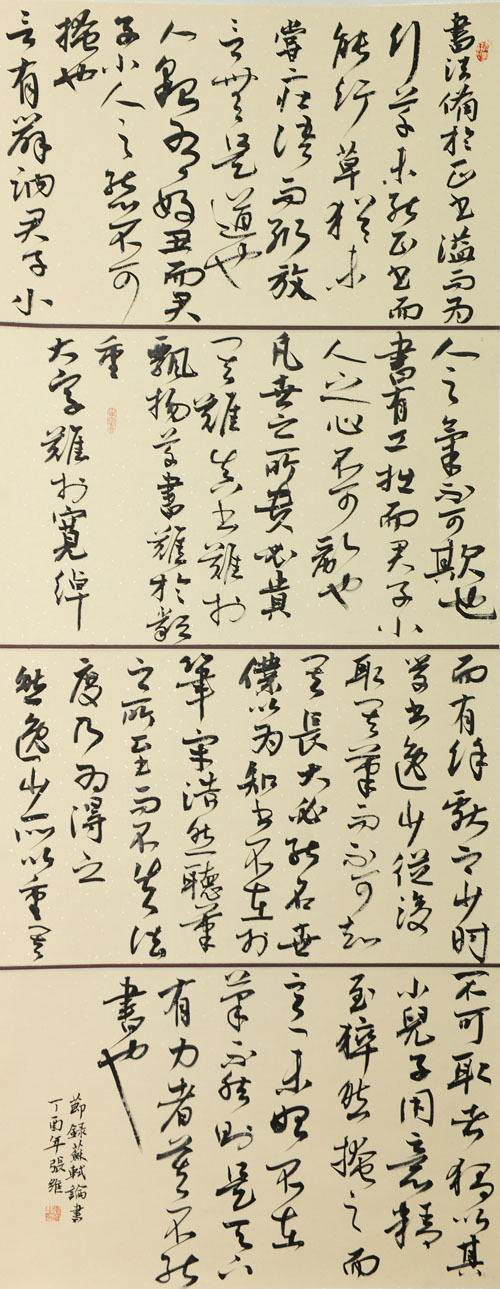 書法備於正书溢而为
行草未能正书而
能行草猶未
嘗庄语而輒放
言無是道也
人貌有好丑而君
子小人之態不可
掩也
言有辭訥君子小
人之氣不可欺也
書有工拙而君子小
人之心不可乱也
凡世之所貴必貴
其難真书難於
飄揚草書難於嚴
重
大字難於寬綽
而有餘献之少时
学书逸少從後
取其筆而不可知
其長大必能名世
僕以为知书不在於
筆牢浩然聽筆
之所至而不失法
度乃为得之
然逸少所以重其
不可取者獨以其
小兒子用意精
至猝然掩之而
意未始不在
筆不然則是天下
有力者莫不能
書也
節錄蘇軾論書
丁酉年張維